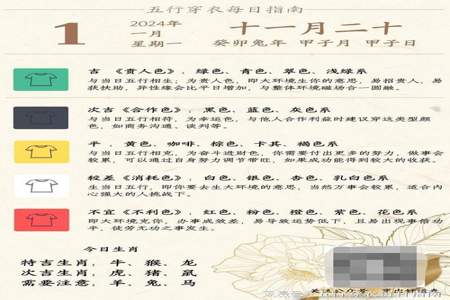 五行穿衣每日指南
1
2024年
一月
星期一
十一月二十
癸卯兔年 甲子月 甲子日
吉 《贵人色》，绿色、青色、翠色、浅绿系
与当日五行相生；为贵人色，即大环境生你的意思，易招贵人、易
获扶助，异性缘会比平日增加，与整体环境磁场合一圆融。
次吉《合作色》，黑色、蓝色、灰色系
与当日五行相符，为幸运色，与他人合作利益时建议穿这类型颜
色，如商务沟通、谈判等。
平 ，黄色、咖啡、棕色、卡其、褐色系
与当日五行相克，为奋斗进财色，你需要付出更多的努力，做事会
较累，可以通过自身努力调节带旺，如果成功能得到较大的收获。
较差《消耗色》，白色、银色、杏色、乳白色系
生当日五行，即你要去生大环境的意思，当然万事会较累，适合内
心强大的人挑战下。
不宜《不利色》，红色、粉色、橙色、紫色、花色系
即大环境克你，办事成效差，易导致运势低下，且易出现事倍功
半，徒劳无功之事发生。
今日生肖
特吉生肖：牛、猴、龙
次吉生肖：虎、猪、鼠
需要注意：羊、兔、马